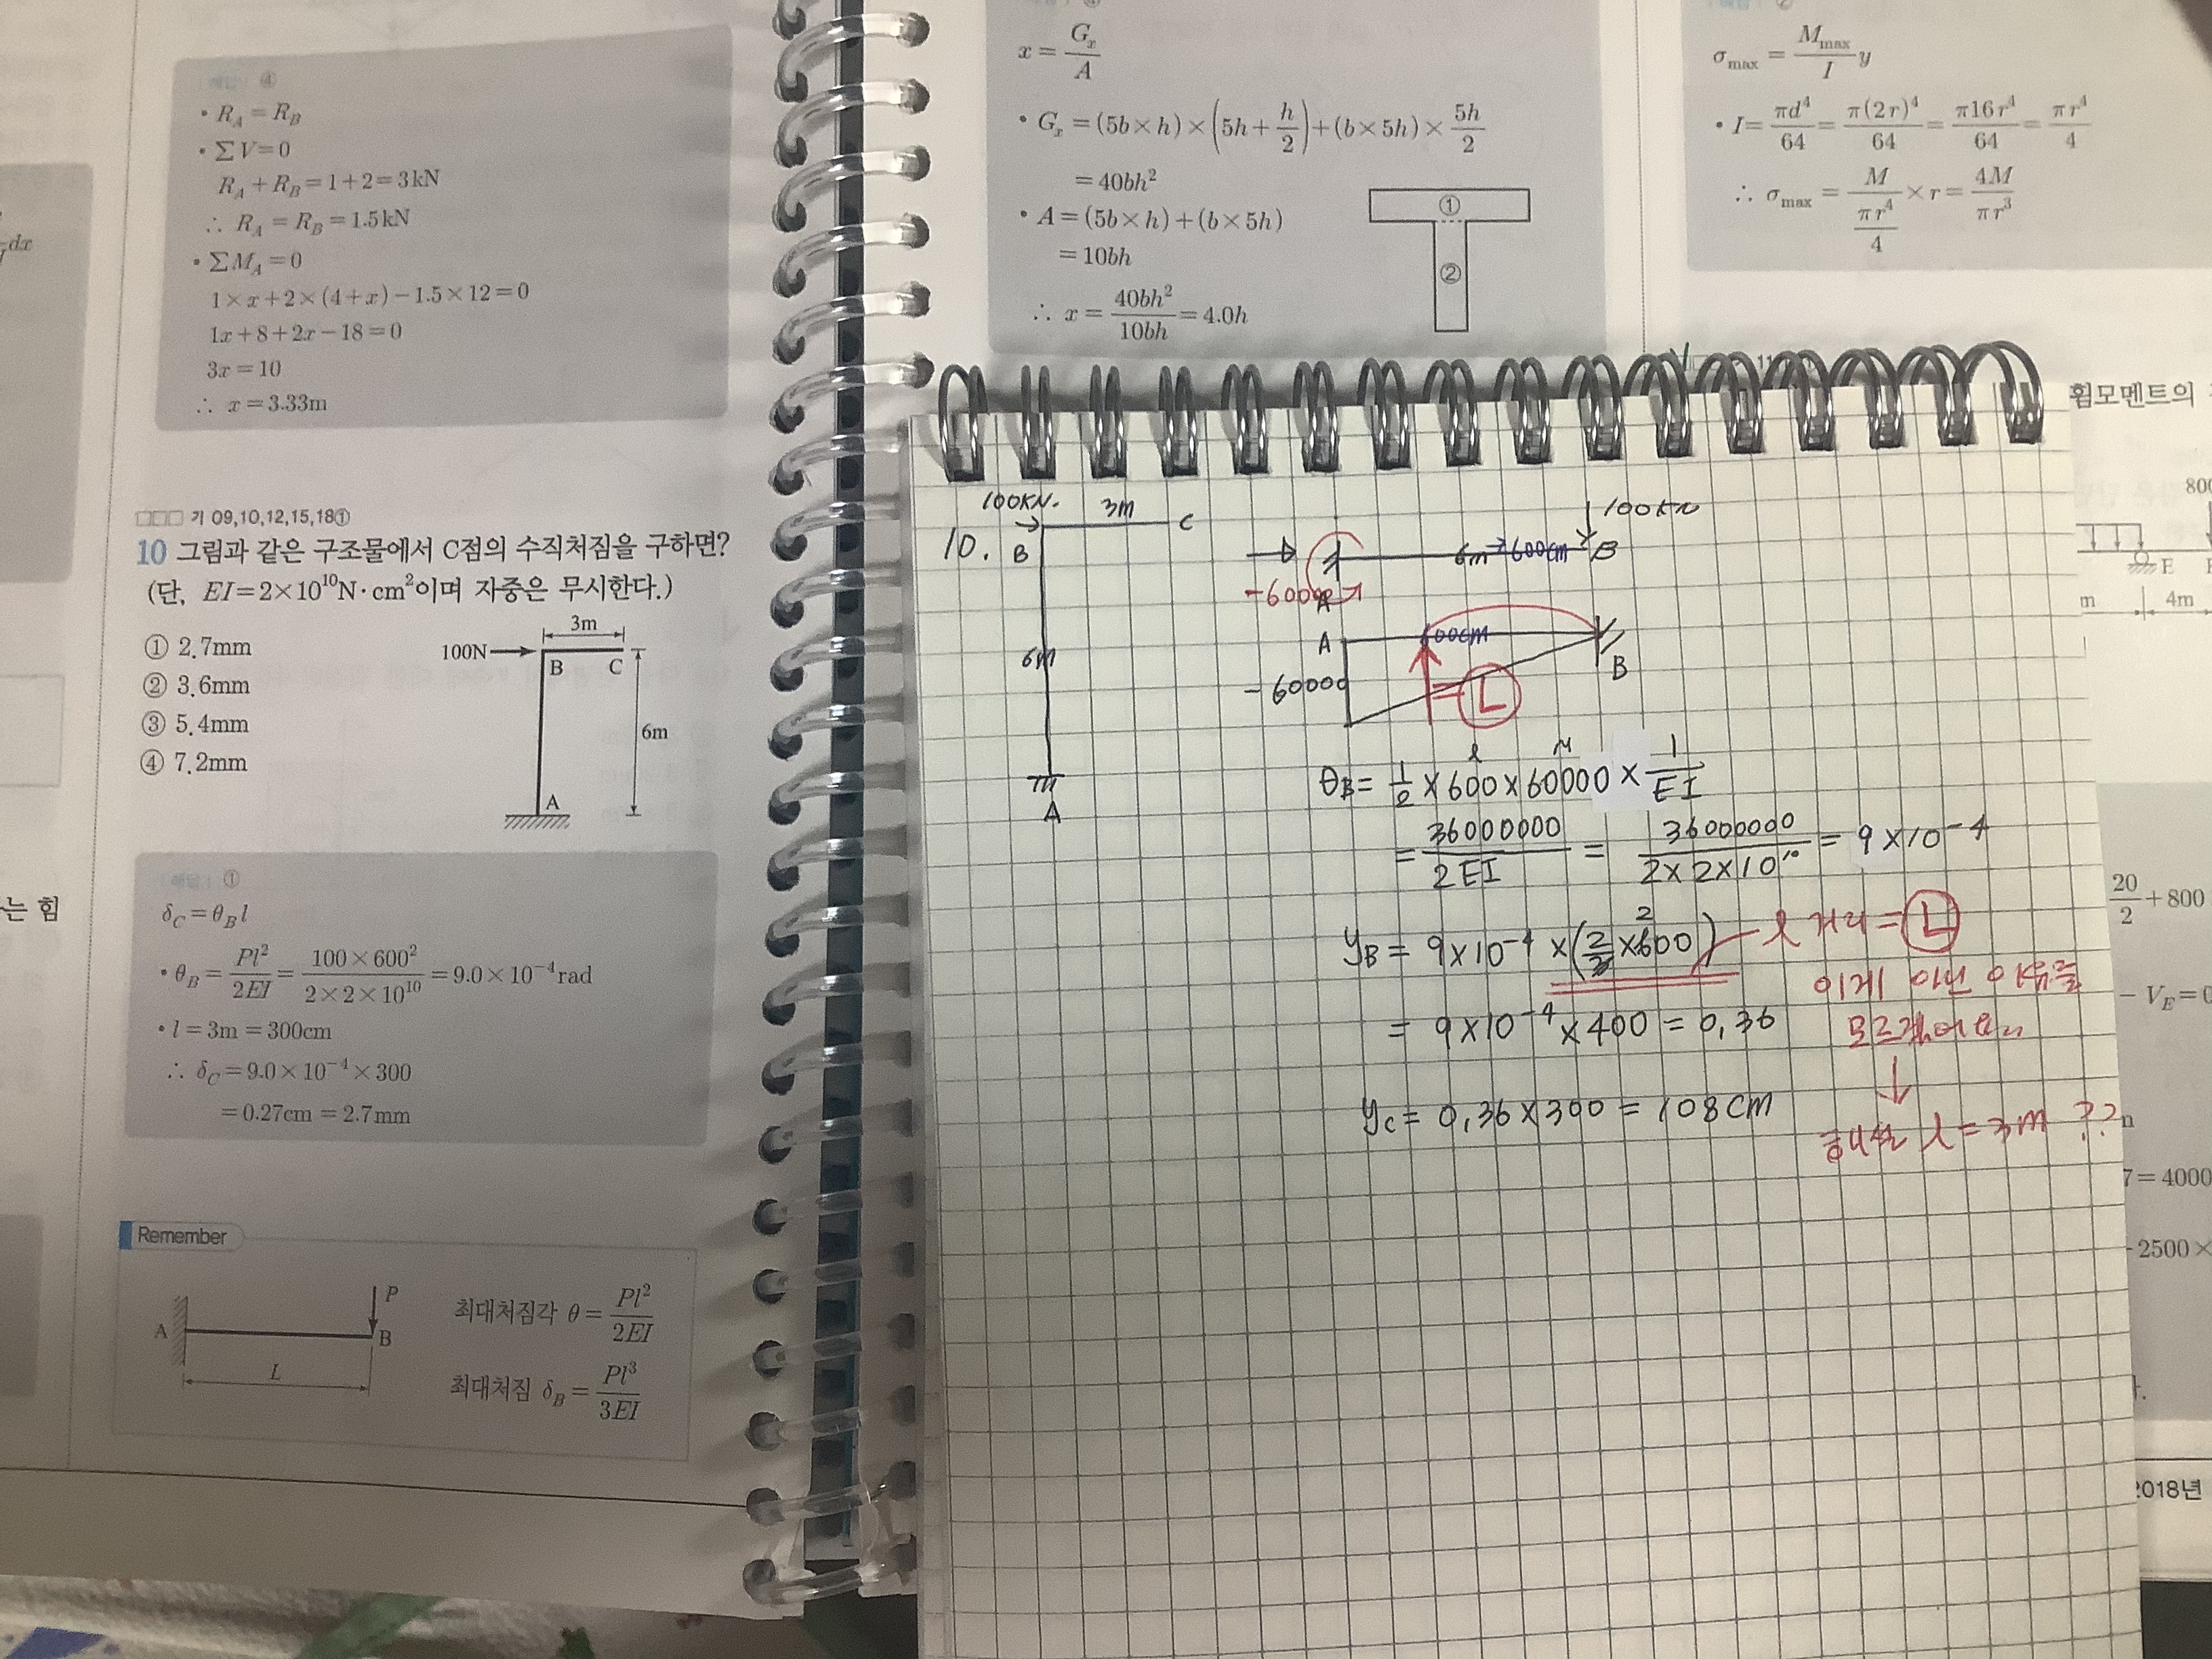 ④
• R_A = R_B
• ΣV=0
R_A + R_B = 1+2 = 3kN
∴ R_A = R_B = 1.5kN
• ΣM_A = 0
1×x+2×(4+x)−1.5×12=0
1x+8+2x−18=0
3x=10
∴ x=3.33m
□□□ 기 09,10,12,15,18①
10 그림과 같은 구조물에서 C점의 수직처짐을 구하면?
(단, EI=2×10¹⁰N·cm²이며 자중은 무시한다.)
① 2.7mm
② 3.6mm
③ 5.4mm
④ 7.2mm
3m
100N
B
C
6m
A
①
δ_C = θ_B l
• θ_B = Pl²/2EI = 100×600²/2×2×10¹⁰ = 9.0×10⁻⁴rad
• l = 3m = 300cm
∴ δ_C = 9.0×10⁻⁴×300
= 0.27cm = 2.7mm
Remember
P
A
B
L
최대처짐각 θ = Pl²/2EI
최대처짐 δ_B = Pl³/3EI
dx
는 힘
x = G_x/A
• G_x = (5b×h)×(5h+h/2)+(b×5h)×5h/2
= 40bh²
• A = (5b×h)+(b×5h)
= 10bh
∴ x = 40bh²/10bh = 4.0h
①
②
σ_max = M_max/I y
• I = πd⁴/64 = π(2r)⁴/64 = π16r⁴/64 = πr⁴/4
∴ σ_max = M/(πr⁴/4) × r = 4M/πr³
휨모멘트의
800
E
m
4m
20/2 +800
− V_E = 0
7=4000
2500×
2018년
10.
100KN.
3m
B
C
6m
A
100KN
6m → 600cm
B
-60000
A
A
600cm
B
-60000
= L
θB = 1/2 × 600 × 60000 × 1/EI
ℓ
M
= 36000000/2EI = 36000000/2×2×10¹⁰ = 9×10⁻⁴
yB = 9×10⁻⁴ × (2/3 × 600)
2
ℓ 거리 = L
이게 아닌 이유를
모르겠어요
= 9×10⁻⁴ × 400 = 0,36
yc = 0,36 × 300 = 108cm
해설 ℓ = 3m ??